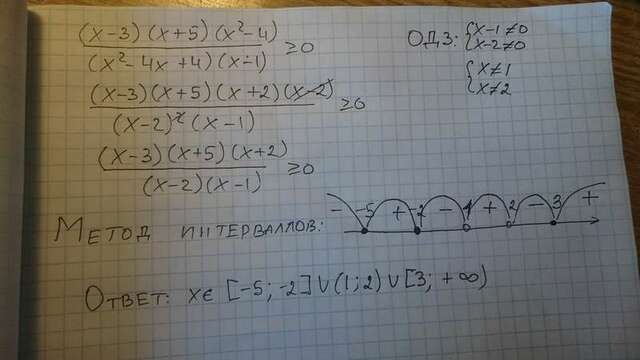 (x-3)(x+5)(x²-4) / (x²-4x+4)(x-1) ≥0
ОДЗ: { x-1≠0
x-2≠0
{ x≠1
x≠2
(x-3)(x+5)(x+2)(x-2) / (x-2)²(x-1) ≥0
(x-3)(x+5)(x+2) / (x-2)(x-1) ≥0
Метод интерваллов: - -5 + -2 - 1 + 2 - 3 +
Ответ: xϵ [-5; -2]∪(1;2)∪[3; +∞)